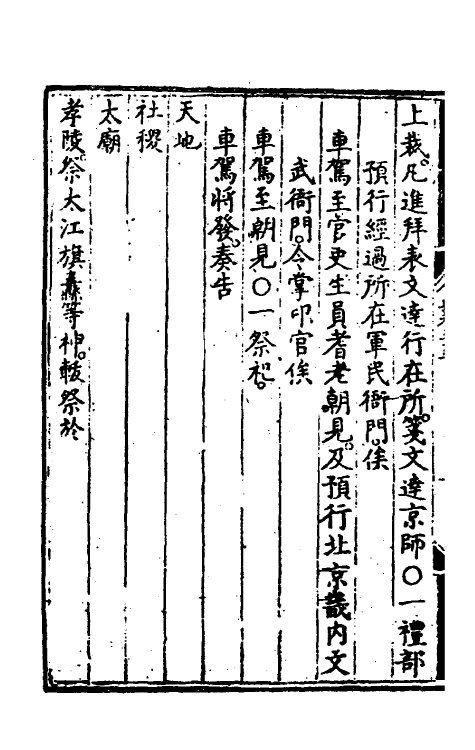 上裁。凡進拜表文達行在所。箋文達京師○一禮部
預行經過所在軍民衙門。俟
車駕至官吏生員耆老朝見。及預行北京畿内文
武衙門。令掌印官俟
車駕至朝見○一祭祀。
車駕將發。奏告
天地
社稷
太廟
孝陵。祭大江旗纛等神。軷祭於